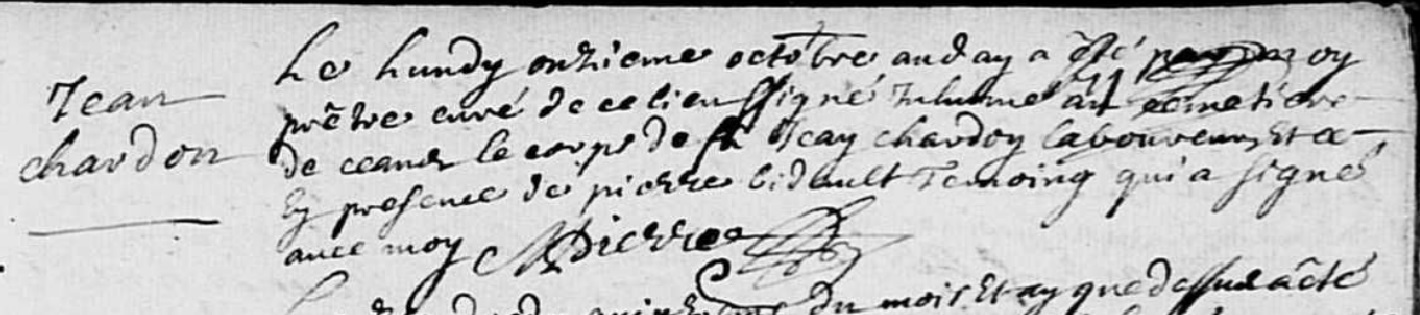 Jean
chardon
Le Lundy onzieme octobre auday a êsté par moy
prêtre curé de ce lieu Signé Inhumé au cemetiere
de ceans le corps de Jean chardon laboureur Et ce
En presence de pierre bidault Temoing qui a signé
avec moy Pierre
du mois Et an que dessus a êté